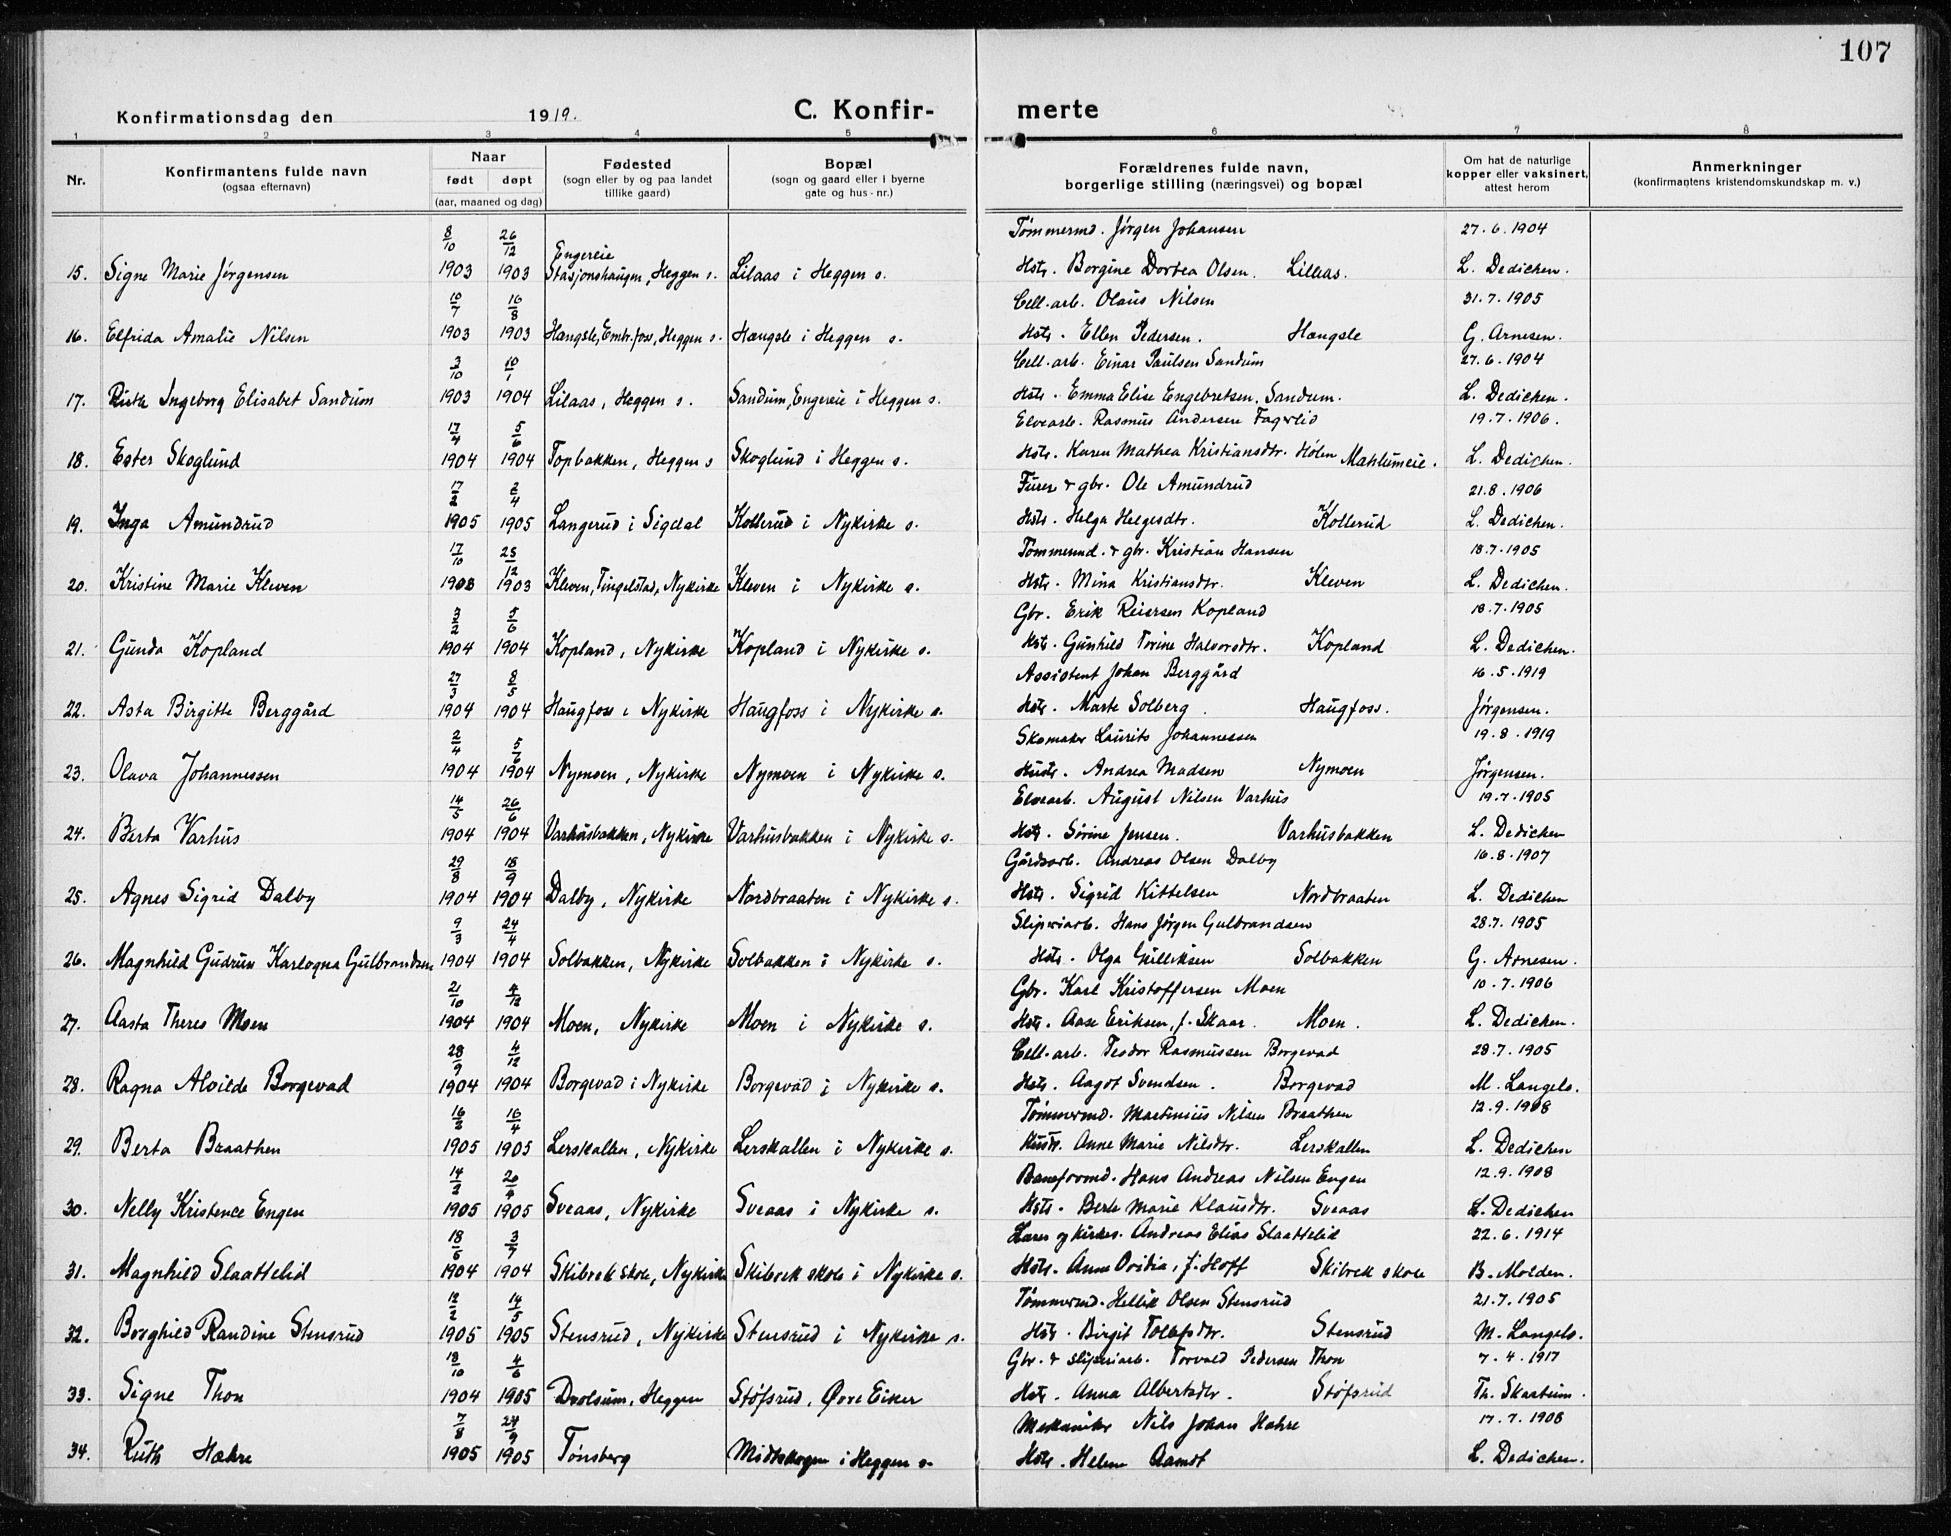 107
Konfirmationsdag den 1919. C. Konfirmerte
1 2 3 4 5 6 7 8
Nr. Konfirmantens fulde navn (ogsaa efternavn) Naar født døpt (aar, maaned og dag) Fødested (sogn eller by og paa landet tillike gaard) Bopæl (sogn og gaard eller i byerne gate og hus-nr.) Forældrenes fulde navn, borgerlige stilling (næringsvei) og bopæl Om hat de naturlige kopper eller vaksinert, attest herom Anmerkninger (konfirmantens kristendomskundskap m. v.)
8/10 26/12 Engereie Tømmermd. Jørgen Johansen 27.6.1904
15. Signe Marie Jørgensen 1903 1903 Stasjonshaugen, Heggen s. Lilaas i Heggen s. Hstr. Borgine Dortea Olsen. Lilaas. L. Dedichen.
10/7 16/8 Cell.arb. Olaus Nilsen 31.7.1905
16. Elfrida Amalie Nilsen 1903 1903 Hængsle, Embr.foss, Heggen s. Hængsle i Heggen s. Hstr. Ellen Pedersen. Hængsle G. Arnesen.
3/10 10/1 Cell.arb. Einar Paulsen Sandum 27.6.1904
17. Ruth Ingeborg Elisabet Sandum 1903 1904 Lilaas, Heggen s. Sandum, Engereie i Heggen s. Hstr. Emma Elise Engebretsen. Sandum. L. Dedichen.
17/4 5/6 Elvearb. Rasmus Andersen Fagerlid 19.7.1906.
18. Ester Skoglund 1904 1904 Topbakken, Heggen s Skoglund i Heggen s. Hstr. Karen Mathea Kristiansdtr. Holen L. Dedichen.
17/2 2/4 Furer & gbr. Ole Amundrud 21.8.1906
19. Inga Amundrud 1905 1905 Langerud i Sigdal Kollerud i Nykirke s. Hstr. Helga Helgesdtr. Kollerud L. Dedichen.
17/10 25/12 Tømmermd. & gbr. Kristian Hansen 18.7.1905
20. Kristine Marie Kleven 1903 1903 Kleven, Tingelstad, Nykirke Kleven i Nykirke s. Hstr. Mina Kristiansdtr. Kleven L. Dedichen.
3/2 5/6 Gbr. Erik Reiersen Kopland 18.7.1905
21. Gunda Kopland 1904 1904 Kopland, Nykirke Kopland i Nykirke s. Hstr. Gunhild Torine Halvorsdtr. Kopland L. Dedichen.
27/3 8/5 Assistent Johan Berggård 16.5.1919
22. Asta Birgitte Berggård 1904 1904 Haugfoss i Nykirke Haugfoss i Nykirke s. Hstr. Marte Solberg. Haugfoss. Jørgensen.
2/4 5/6 Skomaker Laurits Johannessen 19.8.1919
23. Olava Johannessen 1904 1904 Nymoen, Nykirke Nymoen i Nykirke s. Hustr. Andrea Madsen Nymoen Jørgensen.
14/5 26/6 Elvearb. August Nilsen Varhus 19.7.1905
24. Berta Varhus 1904 1904 Varhusbakken, Nykirke Varhusbakken i Nykirke s. Hstr. Sørine Jensen. Varhusbakken L. Dedichen
29/8 18/9 Gårdsarb. Andreas Olsen Dalby 16.8.1907
25. Agnes Sigrid Dalby 1904 1904 Dalby, Nykirke Nordbraaten i Nykirke s. Hstr. Sigrid Kittelsen Nordbraaten L. Dedichen
9/3 24/4 Sliperiarb. Hans Jørgen Gulbrandsen 28.7.1905
26. Magnhild Gudrun Karlogna Gulbrandsen 1904 1904 Solbakken, Nykirke Solbakken i Nykirke s. Hstr. Olga Gulliksen Solbakken G. Arnesen.
21/10 4/12 Gbr. Karl Kristoffersen Moen 10.7.1906
27. Aasta Theres Moen 1904 1904 Moen, Nykirke Moen i Nykirke s. Hstr. Aase Eriksen, f. Skaar. Moen. L. Dedichen.
28/9 4/12 Cell.arb. Teodor Rasmussen Borgevad 28.7.1905
28. Ragna Alvilde Borgevad 1904 1904 Borgevad i Nykirke Borgevad i Nykirke s. Hstr. Aagot Svendsen. Borgevad M. Langels.
16/2 16/4 Tømmermd. Martinius Nilsen Braathen 12.9.1908
29. Berta Braathen 1905 1905 Lerskallen, Nykirke Lerskallen i Nykirke s. Hustr. Anne Marie Nilsdtr. Lerskallen L. Dedichen
14/2 20/4 Baneformd. Hans Andreas Nilsen Engen 12.9.1908
30. Nelly Kristence Engen 1905 1905 Sveaas, Nykirke Sveaas i Nykirke s. Hstr. Berte Marie Klausdtr. Sveaas L. Dedichen
18/6 3/7 Lærer og kirkes. Andreas Elias Slaattelid 22.6.1914
31. Magnhild Slaattelid 1904 1904 Skibrek skole, Nykirke Skibrek skole i Nykirke s. Hstr. Anne Ovidia, f. Hoff Skibrek skole B. Molden.
12/2 14/5 Tømmermd. Hellik Olsen Stensrud 21.7.1905
32. Borghild Randine Stensrud 1905 1905 Stensrud, Nykirke Stensrud i Nykirke s. Hstr. Birgit Tollefsdtr. Stensrud M. Langels.
18/10 4/6 Gbr. & sliperiarb. Torvald Pedersen Thon 7.4.1917
33. Signe Thon 1904 1905 Dvolsum, Heggen Støfsrud, Øvre Eiker Hstr. Anna Albertsdtr. Støfsrud Th. Skartum.
7/8 24/9 Mekaniker Nils Johan Hæhre 17.7.1908
34. Ruth Hæhre 1905 1905 Tønsberg Midtskogen i Heggen s. Hstr. Helene Aamot L. Dedichen.